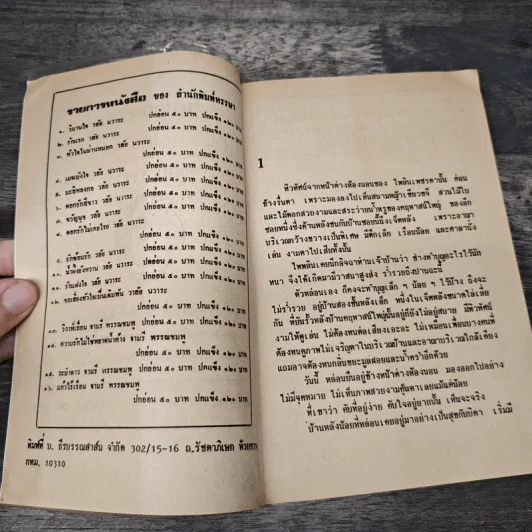 รายการหนังสือ ของ สำนักพิมพ์หรรษา
๑. วิมานใจ วลัย นวาระ
ปกอ่อน ๕๐ บาท ปกแข็ง ๑๒๐ บาท
๒. รักแรก วลัย นวาระ
ปกอ่อน ๕๐ บาท ปกแข็ง ๑๒๐ บาท
๓. หัวใจในม่านหมอก วลัย นวาระ
ปกอ่อน ๕๐ บาท ปกแข็ง ๑๒๐ บาท
๔. เมฆบังใจ วลัย นวาระ
ปกอ่อน ๕๐ บาท ปกแข็ง ๑๒๐ บาท
๕. วลัย นวาระ
ปกอ่อน ๕๐ บาท ปกแข็ง ๑๒๐ บาท
๖. ดอกรักสีขาว วลัย นวาระ
ปกอ่อน ๕๐ บาท ปกแข็ง ๑๒๐ บาท
๗. ขวัญนุช วลัย นวาระ
ปกอ่อน ๕๐ บาท ปกแข็ง ๑๒๐ บาท
๘. วลัย นวาระ
ปกอ่อน ๕๐ บาท ปกแข็ง ๑๒๐ บาท
วลัย นวาระ
ปกอ่อน ๕๐ บาท ปกแข็ง ๑๒๐ บาท
วลัย นวาระ
ปกอ่อน ๕๐ บาท ปกแข็ง ๑๒๐ บาท
วลัย นวาระ
ปกอ่อน ๕๐ บาท ปกแข็ง ๑๒๐ บาท
วลัย นวาระ
ปกอ่อน ๕๐ บาท ปกแข็ง ๑๒๐ บาท
๑๓. วิวาห์เถื่อน จามรี พรรณชมพู
ปกอ่อน ๕๐ บาท ปกแข็ง ๑๒๐ บาท
๑๔. จามรี พรรณชมพู
ปกอ่อน ๕๐ บาท ปกแข็ง ๑๒๐ บาท
๑๕. ระย้าดาว จามรี พรรณชมพู
๑๖. แก้วไร้เรือน จามรี พรรณชมพู
ปกอ่อน ๕๐ บาท ปกแข็ง ๑๒๐ บาท
พิมพ์ที่ บ. ธีรบรรณสาส์น จำกัด 302/15-16 ถ.รัชดาภิเษก ห้วยขวาง
กทม. 10310
1
ทิวทัศน์จากหน้าต่างห้องนอนของ โพลินเพชรดานั้น ค่อน
ข้างรื่นตา เพราะมองลงไปเห็นสนามหญ้าเขียวขจี สวนไม้ใบ
และไม้ดอกสวยงามและสระว่ายน้ำหรูของคฤหาสน์ใหญ่ ของอีก
ซอยหนึ่งซึ่งด้านหลังชนกับบ้านซอยนี้ถึงเจ็ดหลัง เพราะอาณา
บริเวณกว้างขวางเป็นพิเศษ มีตึกเล็ก เรือนน้อย และศาลานั่ง
เล่น งามตาไปเสียทั้งนั้น
โพลินเคยนึกอิจฉาท่านเจ้าบ้านว่า ช่างทำบุญอะไรไว้นัก
หนา จึงได้เกิดมามีวาสนาสูงส่ง ร่ำรวยถึงปานฉะนี้
ตัวหล่อนเอง ก็คงจะทำบุญเล็ก ๆ น้อย ๆ ไว้บ้าง ถึงจะ
ไม่ร่ำรวย อยู่บ้านสองชั้นหลังเล็ก หนึ่งในเจ็ดหลังขนาดไล่เลี่ย
กัน ที่ยืนรั้วหลังบ้านคฤหาสน์ใหญ่นั้นอยู่ก็ยังไม่มีอยู่สบาย มีทิวทัศน์
งามให้ดูเล่น ไม่ต้องทนต่อเสียงเอะอะ ไม่เหมือนเพื่อนบางคนที่
ต้องทนดูภาพไม่เจริญตาในบริเวณบ้านและอาณาบริเวณใกล้เคียง
แถมอาจต้องทนกลิ่นขยะมูลฝอยและน้ำครำอีกด้วย
วันนี้ หล่อนยืนอยู่ข้างหน้าต่างห้องนอน มองออกไปอย่าง
ไม่มีจุดหมาย ไม่เห็นภาพสวยงามคุ้นตาเลยแม้แต่น้อย
ที่เขาว่า คับที่อยู่ง่าย คับใจอยู่ยากนั้น เห็นจะจริง
บ้านหลังน้อยที่หล่อนเคยอยู่มาอย่างเป็นสุขกับบิดา เริ่มมี